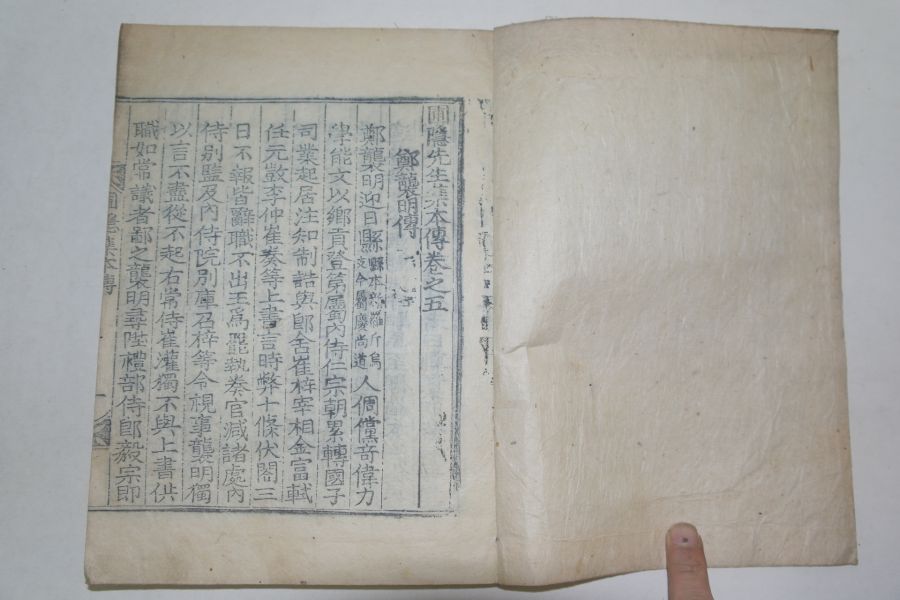 圃隱先生集本傳卷之五
鄭襲明傳
鄭襲明迎日縣縣本新羅斤烏支今屬慶尚道人倜儻奇偉力
學能文以鄉貢登第屬內侍仁宗朝累轉國子
司業起居注知制誥與郎舍崔梓宰相金富軾
任元敱李仲崔奏等上書言時弊十條伏閤三
日不報皆辭職不出王爲罷執奏官減諸處內
侍別監及內侍院別庫召梓等令視事襲明獨
以言不盡從不起右常侍崔灌獨不與上書供
職如常議者鄙之襲明尋陞禮部侍郎毅宗即
圃隱集本傳